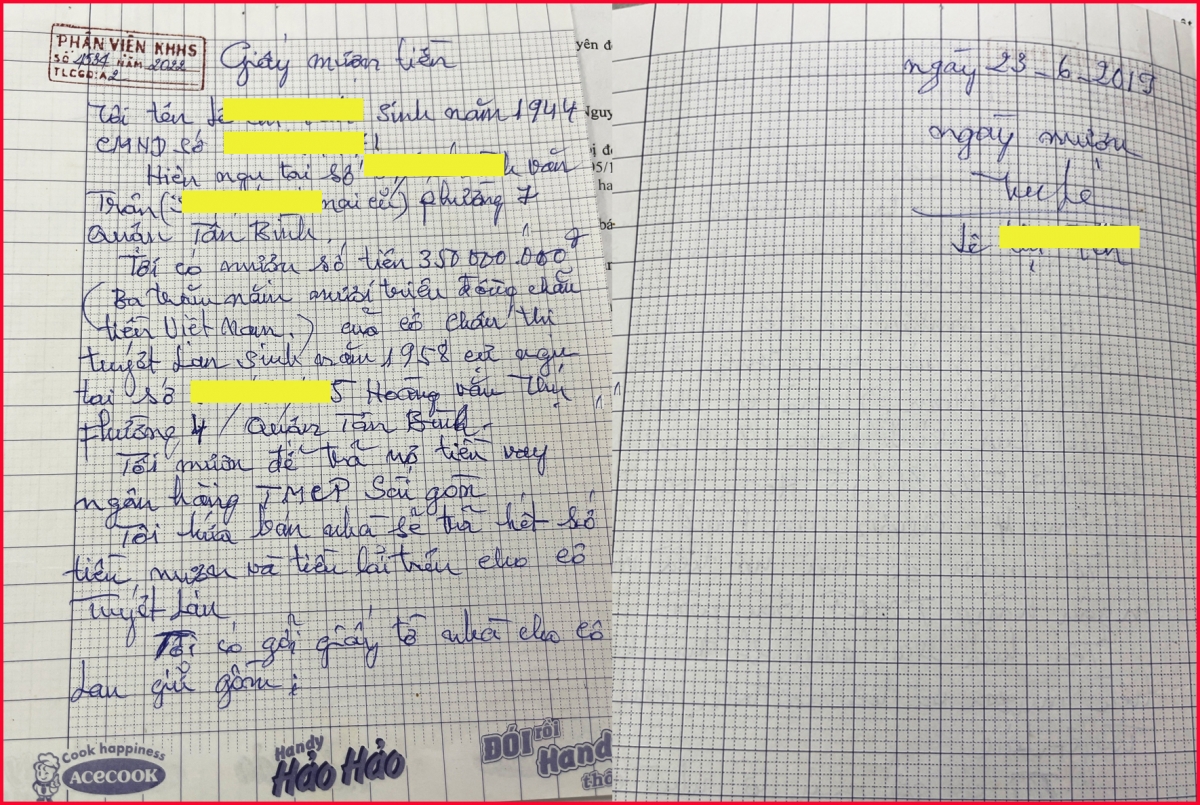 PHÂN VIỆN KHHS
SỐ 4534 NĂM 2022
TLCGĐ: A2
Giấy mươn tiền
Tôi tên Lê sinh năm 1944
CMND số
Hiện ngụ tại số văn
Trân ( nai cũ) phường 7
Quân Tân Bình.
Tôi có mươn số tiền 350 000.000đ
(Ba trăm năm mươi triệu đồng chẵn
tiền Việt Nam.) của cô Châu thi
tuyết Lan sinh năm 1958 cư ngụ
tại số 5 Hoàng văn Thụ
phường 4 / Quân Tân Bình.
Tôi mươn để trả nợ tiền vay
ngân hàng TMCP Sài gòn
Tôi hứa bán nhà sẽ trả hết số
tiền mươn và tiền lải trên cho cô
Tuyết Lan
Tôi có gởi giấy tờ nhà cho cô
Lan giữ gồm:
Cook happiness
ACECOOK
Handy
Hảo Hảo
ĐÓI rồi
Handy
yên đ
Nguy
ha
ngày 23-6-2019
ngày mươn
Lê